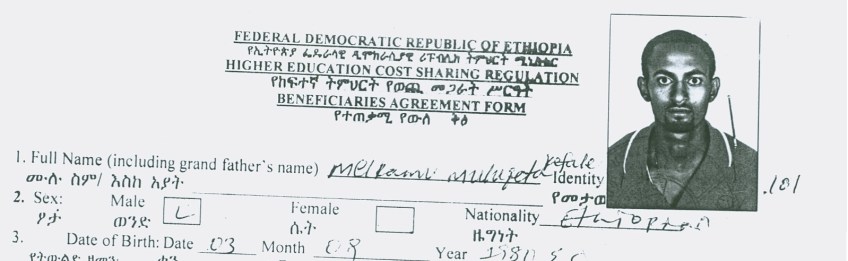 FEDERAL DEMOCRATIC REPUBLIC OF ETHIOPIA
የኢትዮጵያ ፌዴራላዊ ዲሞክራሲያዊ ሪፐብሊክ ትምህርት ሚኒስቴር
HIGHER EDUCATION COST SHARING REGULATION
የከፍተኛ ትምህርት የወጪ መጋራት ሥርዓት
BENEFICIARIES AGREEMENT FORM
የተጠቃሚ የውል ቅፅ
1. Full Name (including grand father's name) Melkamu Mulugeta Kefale Identity
ሙሉ ስም/ እስከ አያት የመታወ /01
2. Sex: Male Female Nationality Ethiopian
ፆታ ወንድ ሴት ዜግነት
3. Date of Birth: Date 03 Month 08 Year 1980
የትውልድ ዘመን ቀን